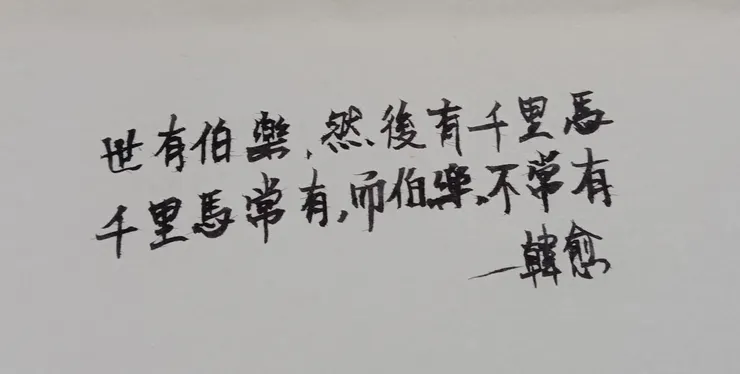 世有伯樂,然後有千里馬
千里馬常有,而伯樂,不常有
—韓愈